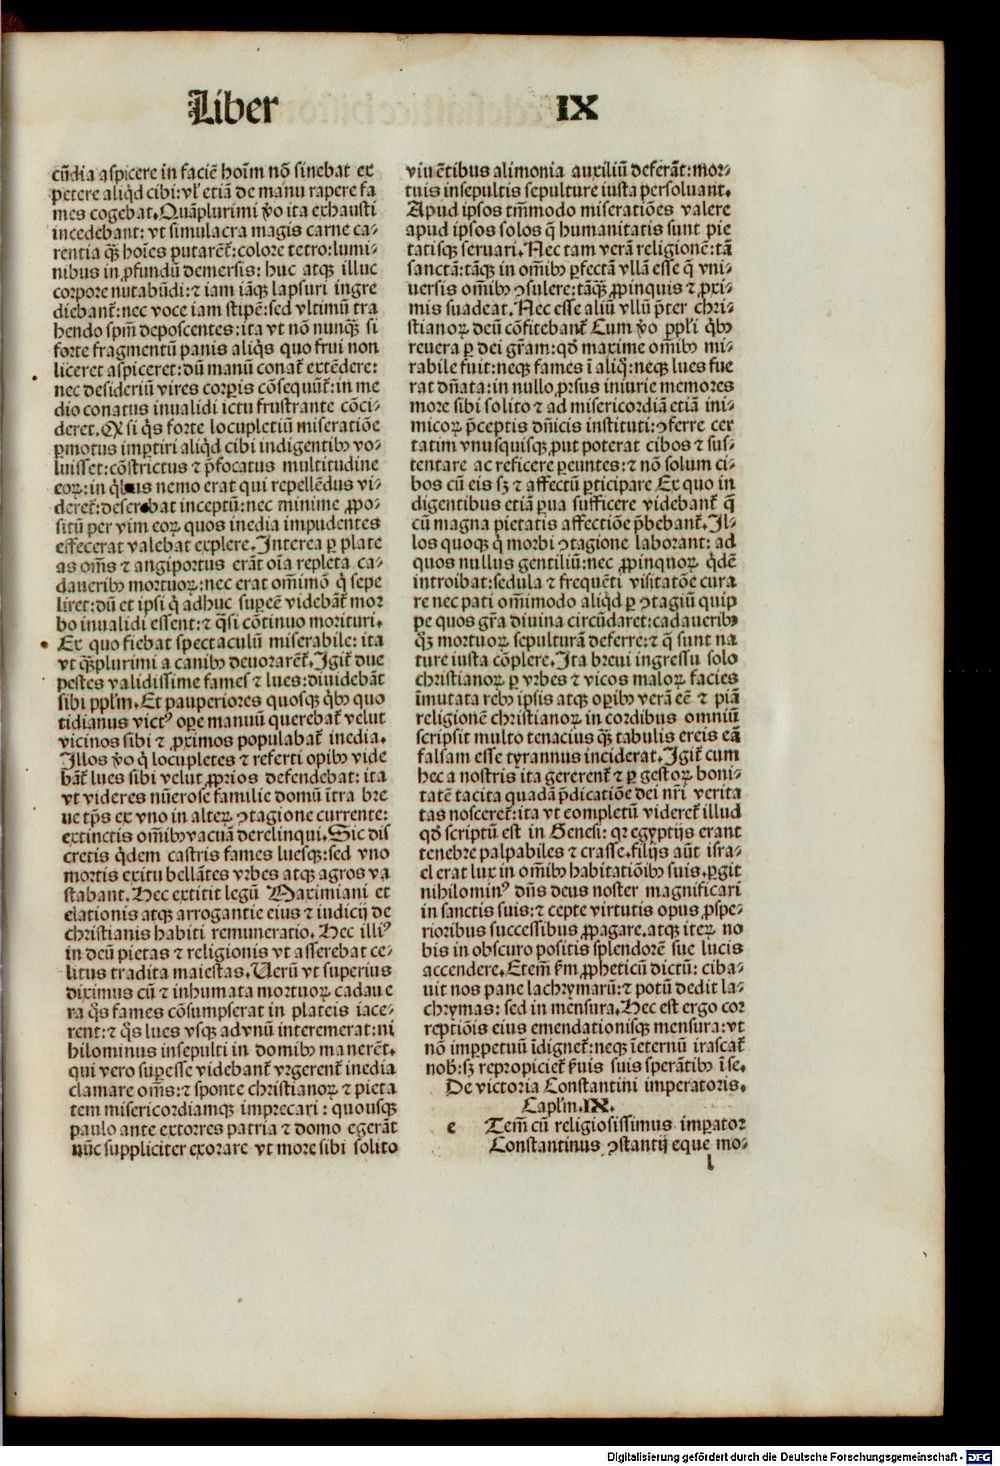 Liber IX
cūdia aspicere in faciē hoīm nō sinebat ex
petere aliqd cibi: vl' etiā de manu rapere fa
mes cogebat. Quāplurimi ꝟo ita exhausti
incedebant: vt simulacra magis carne ca-
rentia qꝫ hoīes putarēt᷑: colore tetro: lumi-
nibus in ꝓfundū demersis: huc atqꝫ illuc
corpore nutabūdi: ⁊ iam iāqꝫ lapsuri ingre
diebant᷑: nec voce iam stipē: sed vltimū tra
hendo spm̄ deposcentes: ita vt nō nunqꝫ si
forte fragmentū panis aliqs quo frui non
liceret aspiceret: dū manū conat᷑ extēdere:
nec desideriū vires corꝑis cōsequūt᷑: in me
dio conatus inualidi ictu frustrante cōci-
deret. Q si qs forte locupletiū miseratiōe
ꝑmotus imꝑtiri aliqd cibi indigentibꝰ vo-
luisset: cōstrictus ⁊ p̄focatus multitudine
eoꝝ: in qbus nemo erat qui repellēdus vi-
deret᷑: deserebat inceptū: nec minime ꝓpo-
sitū per vim eoꝝ quos inedia impudentes
effecerat valebat explere. Interea ꝑ plate
as om̄s ⁊ angiportus erāt oīa repleta ca-
daueribꝰ mortuoꝝ: nec erat om̄imō q sepe
liret: dū et ipsi q adhuc suꝑeē videbāt᷑ mor
bo inualidi essent: ⁊ qsi cōtinuo morituri.
Ex quo fiebat spectaculū miserabile: ita
vt qꝫplurimi a canibꝰ deuorarēt᷑. Igit᷑ due
pestes validissime fames ⁊ lues: diuidebāt
sibi ppl'm. Et pauperiores quosqꝫ qbꝰ quo
tidianus victꝰ oꝑe manuū querebat᷑ velut
vicinos sibi ⁊ ꝓximos populabat᷑ inedia.
Illos ꝟo q locupletes ⁊ referti opibꝰ vide
bāt᷑ lues sibi velut ꝓprios defendebat: ita
vt videres nūerose familie domū ītra bre
ue tp̄s ex vno in alteꝝ ꝯtagione currente:
extinctis om̄ibꝰ vacuā derelinqui. Sic dis
cretis qdem castris fames luesqꝫ: sed vno
mortis exitu bellātes vrbes atqꝫ agros va
stabant. Hec extitit legū Maximiani et
elationis atqꝫ arrogantie eius ⁊ iudicij de
christianis habiti remuneratio. Hec illiꝰ
in deū pietas ⁊ religionis vt asserebat ce-
litus tradita maiestas. Uerū vt superius
diximus cū ⁊ inhumata mortuoꝝ cadaue
ra qs fames cōsumpserat in plateis iace-
rent: ⁊ qs lues vsqꝫ ad vnū interemerat: ni
hilominus insepulti in domibꝰ manerēt.
qui vero suꝑesse videbant᷑ vrgerent᷑ inedia
clamare om̄s: ⁊ sponte christianoꝝ ⁊ pieta
tem misericordiamqꝫ imprecari: quousqꝫ
paulo ante extorres patria ⁊ domo egerāt
nūc suppliciter exorare vt more sibi solito
viuētibus alimonia auxiliū deferāt: mor-
tuis insepultis sepulture iusta persoluant.
Apud ipsos tm̄modo miseratiōes valere
apud ipsos solos q̄ humanitatis sunt pie
tatisqꝫ seruari. Nec tam verā religionē: tā
sanctā: tāqꝫ in om̄ibꝰ ꝑfectā vllā esse q̄ vni-
uersis om̄ibꝰ ꝯsulere: tāqꝫ ꝓpinquis ⁊ ꝓxi-
mis suadeat. Nec esse aliū vllū p̄ter chri-
stianoꝝ deū cōfitebant᷑ Cum ꝟo ppl'i qbꝰ
reuera ꝑ dei grām: qd̄ maxime om̄ibꝰ mi-
rabile fuit: neqꝫ fames ī aliq: neqꝫ lues fue
rat dn̄ata: in nullo ꝓrsus iniurie memores
more sibi solito ⁊ ad misericordiā etiā ini-
micoꝝ p̄ceptis dn̄icis instituti: ꝯferre cer
tatim vnusquisqꝫ ꝓut poterat cibos ⁊ sus-
tentare ac reficere ꝑeuntes: ⁊ nō solum ci-
bos cū eis sꝫ ⁊ affectū ꝑticipare Ex quo in
digentibus etiā ꝑua sufficere videbant᷑ q̄
cū magna pietatis affectiōe p̄bebant᷑. Il-
los quoqꝫ q morbi ꝯtagione laborant: ad
quos nullus gentiliū: nec ꝓpinquoꝝ qdē
introibat: sedula ⁊ frequēti visitatōe cura
re nec pati om̄imodo aliqd ꝑ ꝯtagiū quip
pe quos grā diuina circūdaret: cadaueribꝰ
qꝫ mortuoꝝ sepulturā deferre: ⁊ q̄ sunt na
ture iusta cōplere. Ita breui ingressu solo
christianoꝝ ꝑ vrbes ⁊ vicos maloꝝ facies
īmutata rebꝰ ipsis atqꝫ oꝑibꝰ verā eē ⁊ piā
religionē christianoꝝ in cordibus omniū
scripsit multo tenacius qꝫ tabulis ereis eā
falsam esse tyrannus inciderat. Igit᷑ cum
hec a nostris ita gererent᷑ ⁊ ꝑ gestoꝝ boni-
tatē tacita quadā p̄dicatiōe dei nr̄i verita
tas nosceret᷑: ita vt completū videret᷑ illud
qd̄ scriptū est in Genesi: qꝛ egyptijs erant
tenebre palpabiles ⁊ crasse. filijs aūt isra-
el erat lux in om̄ibꝰ habitatiōibꝰ suis. ꝑgit
nihilominꝰ dn̄s deus noster magnificari
in sanctis suis: ⁊ cepte virtutis opus ꝓspe-
rioribus successibus ꝓpagare. atqꝫ iteꝝ no
bis in obscuro positis splendorē sue lucis
accendere. Etem̄ km̄ ꝓpheticū dictū: ciba-
uit nos pane lachrymarū: ⁊ potū dedit la-
chrymas: sed in mēsura. Hec est ergo cor
reptiōis eius emendationisqꝫ mensura: vt
nō imꝑpetuū īdignet᷑: neqꝫ īeternū irascat᷑
nob̄: sꝫ repropiciet᷑ ẜuis suis sperātibꝰ ī se.
De victoria Constantini imperatoris.
Capl'm. IX.
e Tem̄ cū religiosissimus imꝑator
Constantinus ꝯstantij eque mo-
l
Digitalisierung gefördert durch die Deutsche Forschungsgemeinschaft - DFG